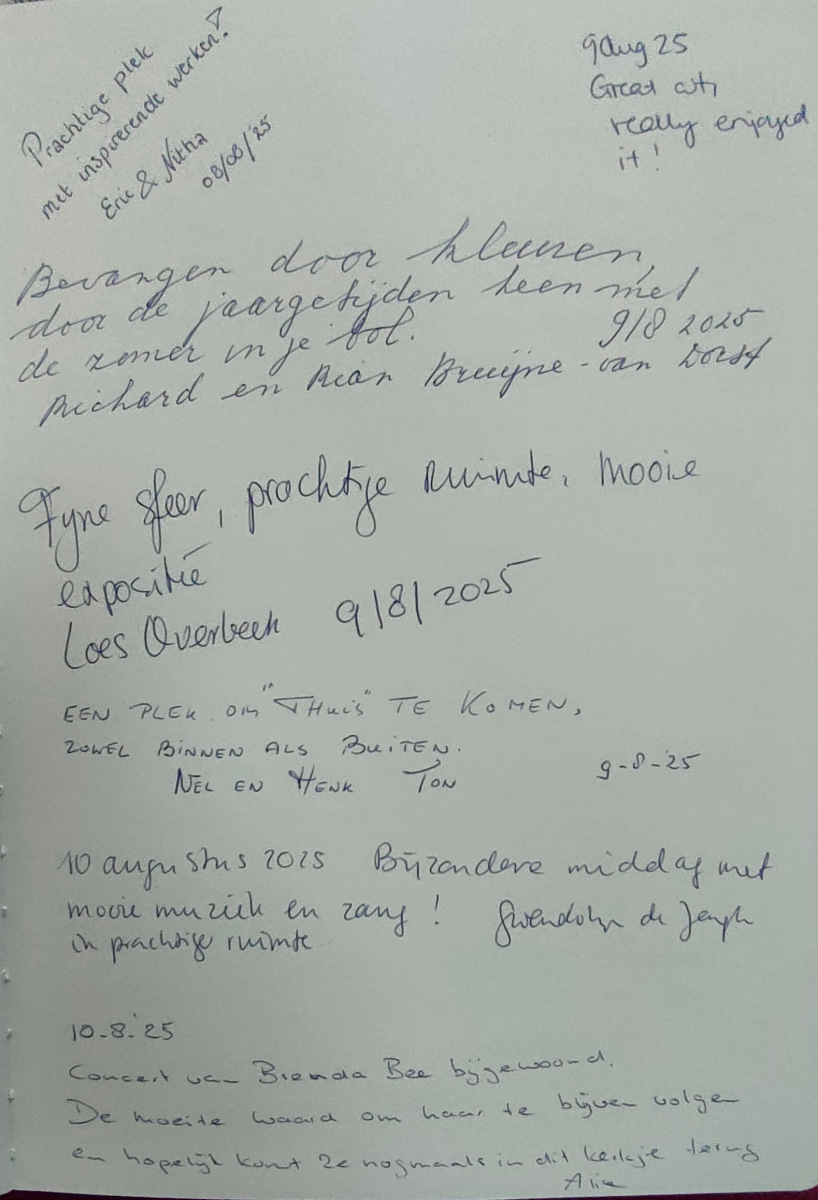 Prachtige plek
met inspirerende werken!
Eric & Nitha
08/08/'25
9 Aug 25
Great art,
really enjoyed
it!
Bevangen door kleuren,
door de jaargetijden heen met
de zomer in je bol.
9/8 2025
Richard en Rian Bruijne-van Dorst
Fijne sfeer, prachtige ruimte, mooie
expositie
Loes Overbeek 9/8/2025
EEN PLEK OM "THUIS" TE KOMEN,
ZOWEL BINNEN ALS BUITEN.
NEL EN HENK TON 9-8-'25
10 augustus 2025 Bijzondere middag met
mooie muziek en zang! Gwendolyn de Jongh
in prachtige ruimte
10-8-'25
Concert van Brenda Bee bijgewoond.
De moeite waard om haar te blijven volgen
en hopelijk komt ze nogmaals in dit kerkje terug